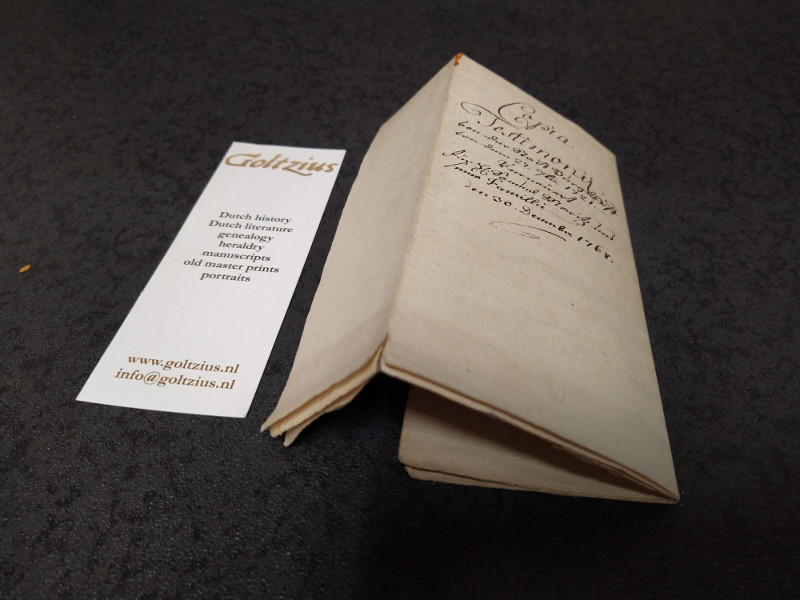 Goltzius
Dutch history
Dutch literature
genealogy
heraldry
manuscripts
old master prints
portraits
www.goltzius.nl
info@goltzius.nl
Copia
Testimonii
von der Stadt
von dem 1721.
Familie
den 30. December 1768.